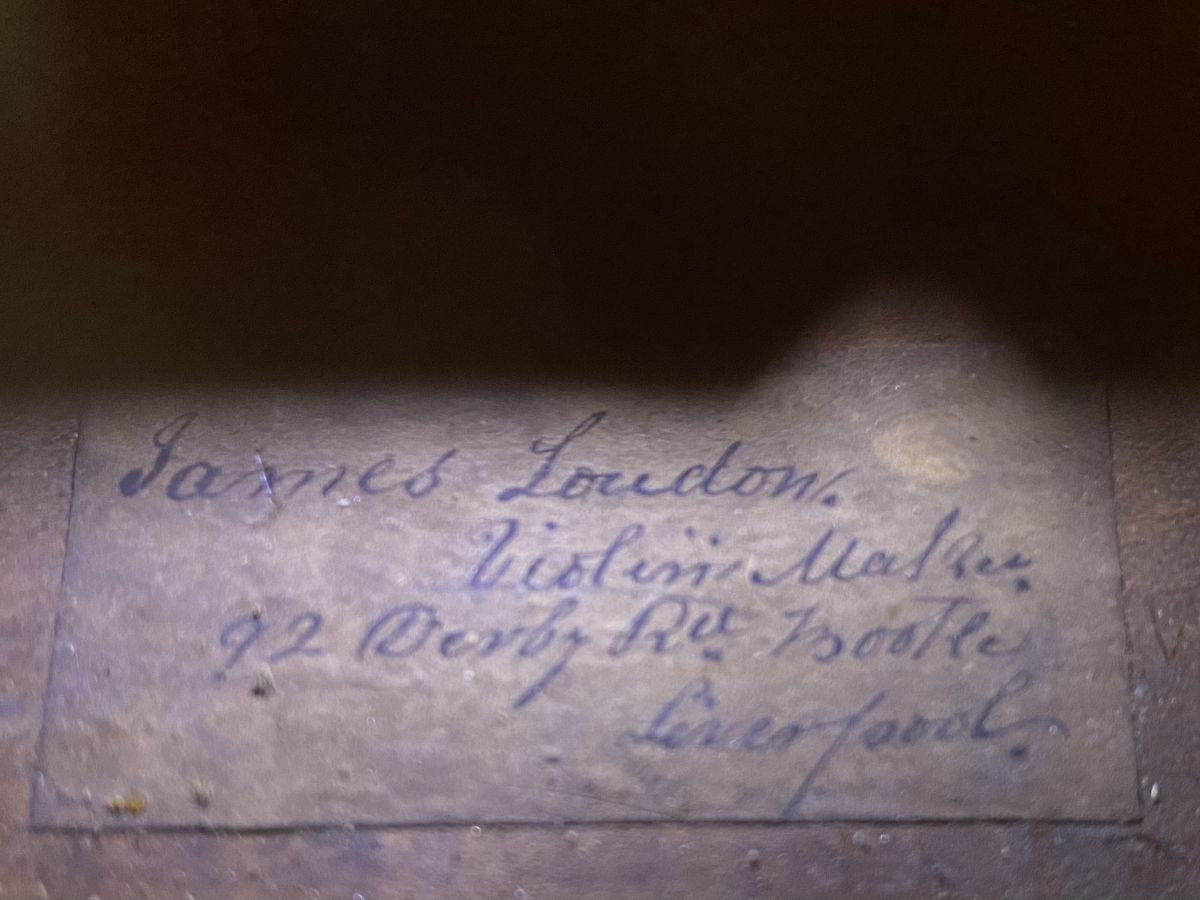 James Loudon.
Violin Maker.
92 Derby Rd. Bootle
Liverpool.